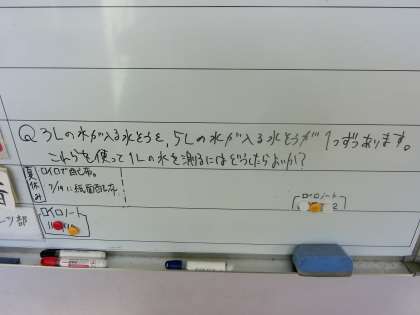 Q 3Lの水が入る水そうと、5Lの水が入る水そうが1つずつあります。
これらを使って1Lの水を測るにはどうしたらよいか?
夏休み
ロイロで配布。
7/19に紙面配布
ロイロノート
ロイロノート
2
ーツ部